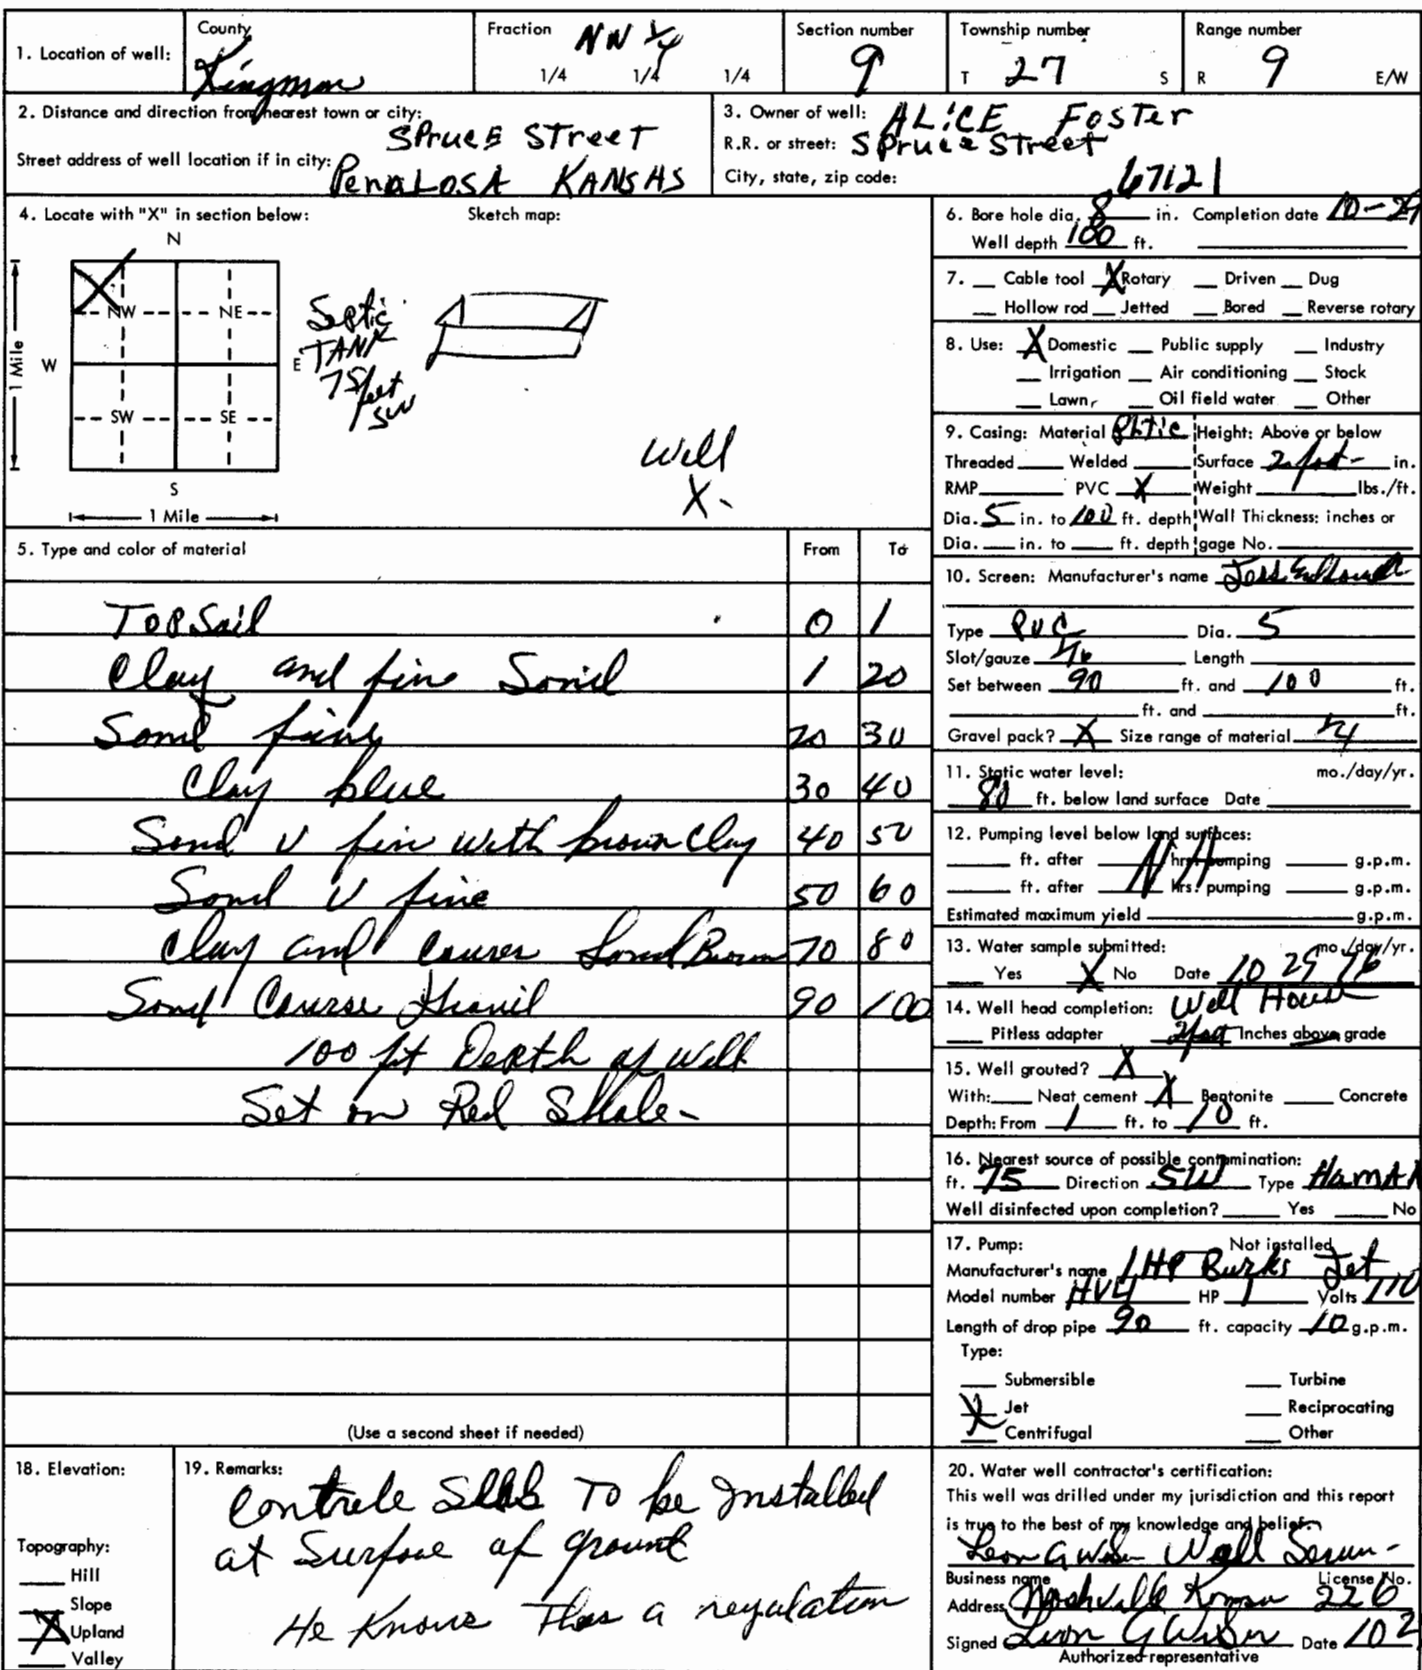 1. Location of well: County Kingman Fraction NW 1/4 1/4 1/4 1/4 Section number 9 Township number T 27 S Range number R 9 E/W
2. Distance and direction from nearest town or city: Spruce Street
Street address of well location if in city: PenaLosA KANSAS
3. Owner of well: ALiCE Foster
R.R. or street: Spruce Street
City, state, zip code: 67121
4. Locate with "X" in section below: Sketch map:
N
NW NE
W E
SW SE
S
1 Mile
1 Mile
Septic
TANK
75 feet
SW
Well
X
5. Type and color of material From To
Top Soil 0 1
Clay and fine Sand 1 20
Sand fine 20 30
Clay blue 30 40
Sand V fine with brown Clay 40 50
Sand V fine 50 60
Clay and Courser Sand Brown 70 80
Sand Course Gravil 90 100
100 ft Depth of Well
Set on Red Shale -
(Use a second sheet if needed)
6. Bore hole dia. 8 in. Completion date 10-29
Well depth 100 ft.
7. Cable tool X Rotary Driven Dug
Hollow rod Jetted Bored Reverse rotary
8. Use: X Domestic Public supply Industry
Irrigation Air conditioning Stock
Lawn Oil field water Other
9. Casing: Material Height: Above or below
Threaded Welded Surface 2 foot in.
RMP PVC X Weight lbs./ft.
Dia. 5 in. to 100 ft. depth Wall Thickness: inches or
Dia. in. to ft. depth gage No.
10. Screen: Manufacturer's name
Type PVC Dia. 5
Slot/gauze 1/16 Length
Set between 90 ft. and 100 ft.
ft. and ft.
Gravel pack? X Size range of material 1/4
11. Static water level: mo./day/yr.
80 ft. below land surface Date
12. Pumping level below land surfaces:
ft. after hrs. pumping g.p.m.
ft. after hrs. pumping g.p.m.
Estimated maximum yield g.p.m.
13. Water sample submitted: mo./day/yr.
Yes X No Date 10 29 76
14. Well head completion: Well House
Pitless adapter 2 foot Inches above grade
15. Well grouted? X
With: Neat cement X Bentonite Concrete
Depth: From 1 ft. to 10 ft.
16. Nearest source of possible contamination:
ft. 75 Direction SW Type HamAN
Well disinfected upon completion? Yes No
17. Pump: Not installed
Manufacturer's name 1 HP Burks Jet
Model number HV4 HP 1 Volts 110
Length of drop pipe 90 ft. capacity 10 g.p.m.
Type:
Submersible Turbine
X Jet Reciprocating
Centrifugal Other
18. Elevation:
Topography:
Hill
Slope
X Upland
Valley
19. Remarks: Slab To be Installed
at Surface of ground
He Knows a regulation
20. Water well contractor's certification:
This well was drilled under my jurisdiction and this report
is true to the best of my knowledge and belief.
Leon G Well
Business name License No.
Address Nashville 226
Signed Leon G Date 102
Authorized representative